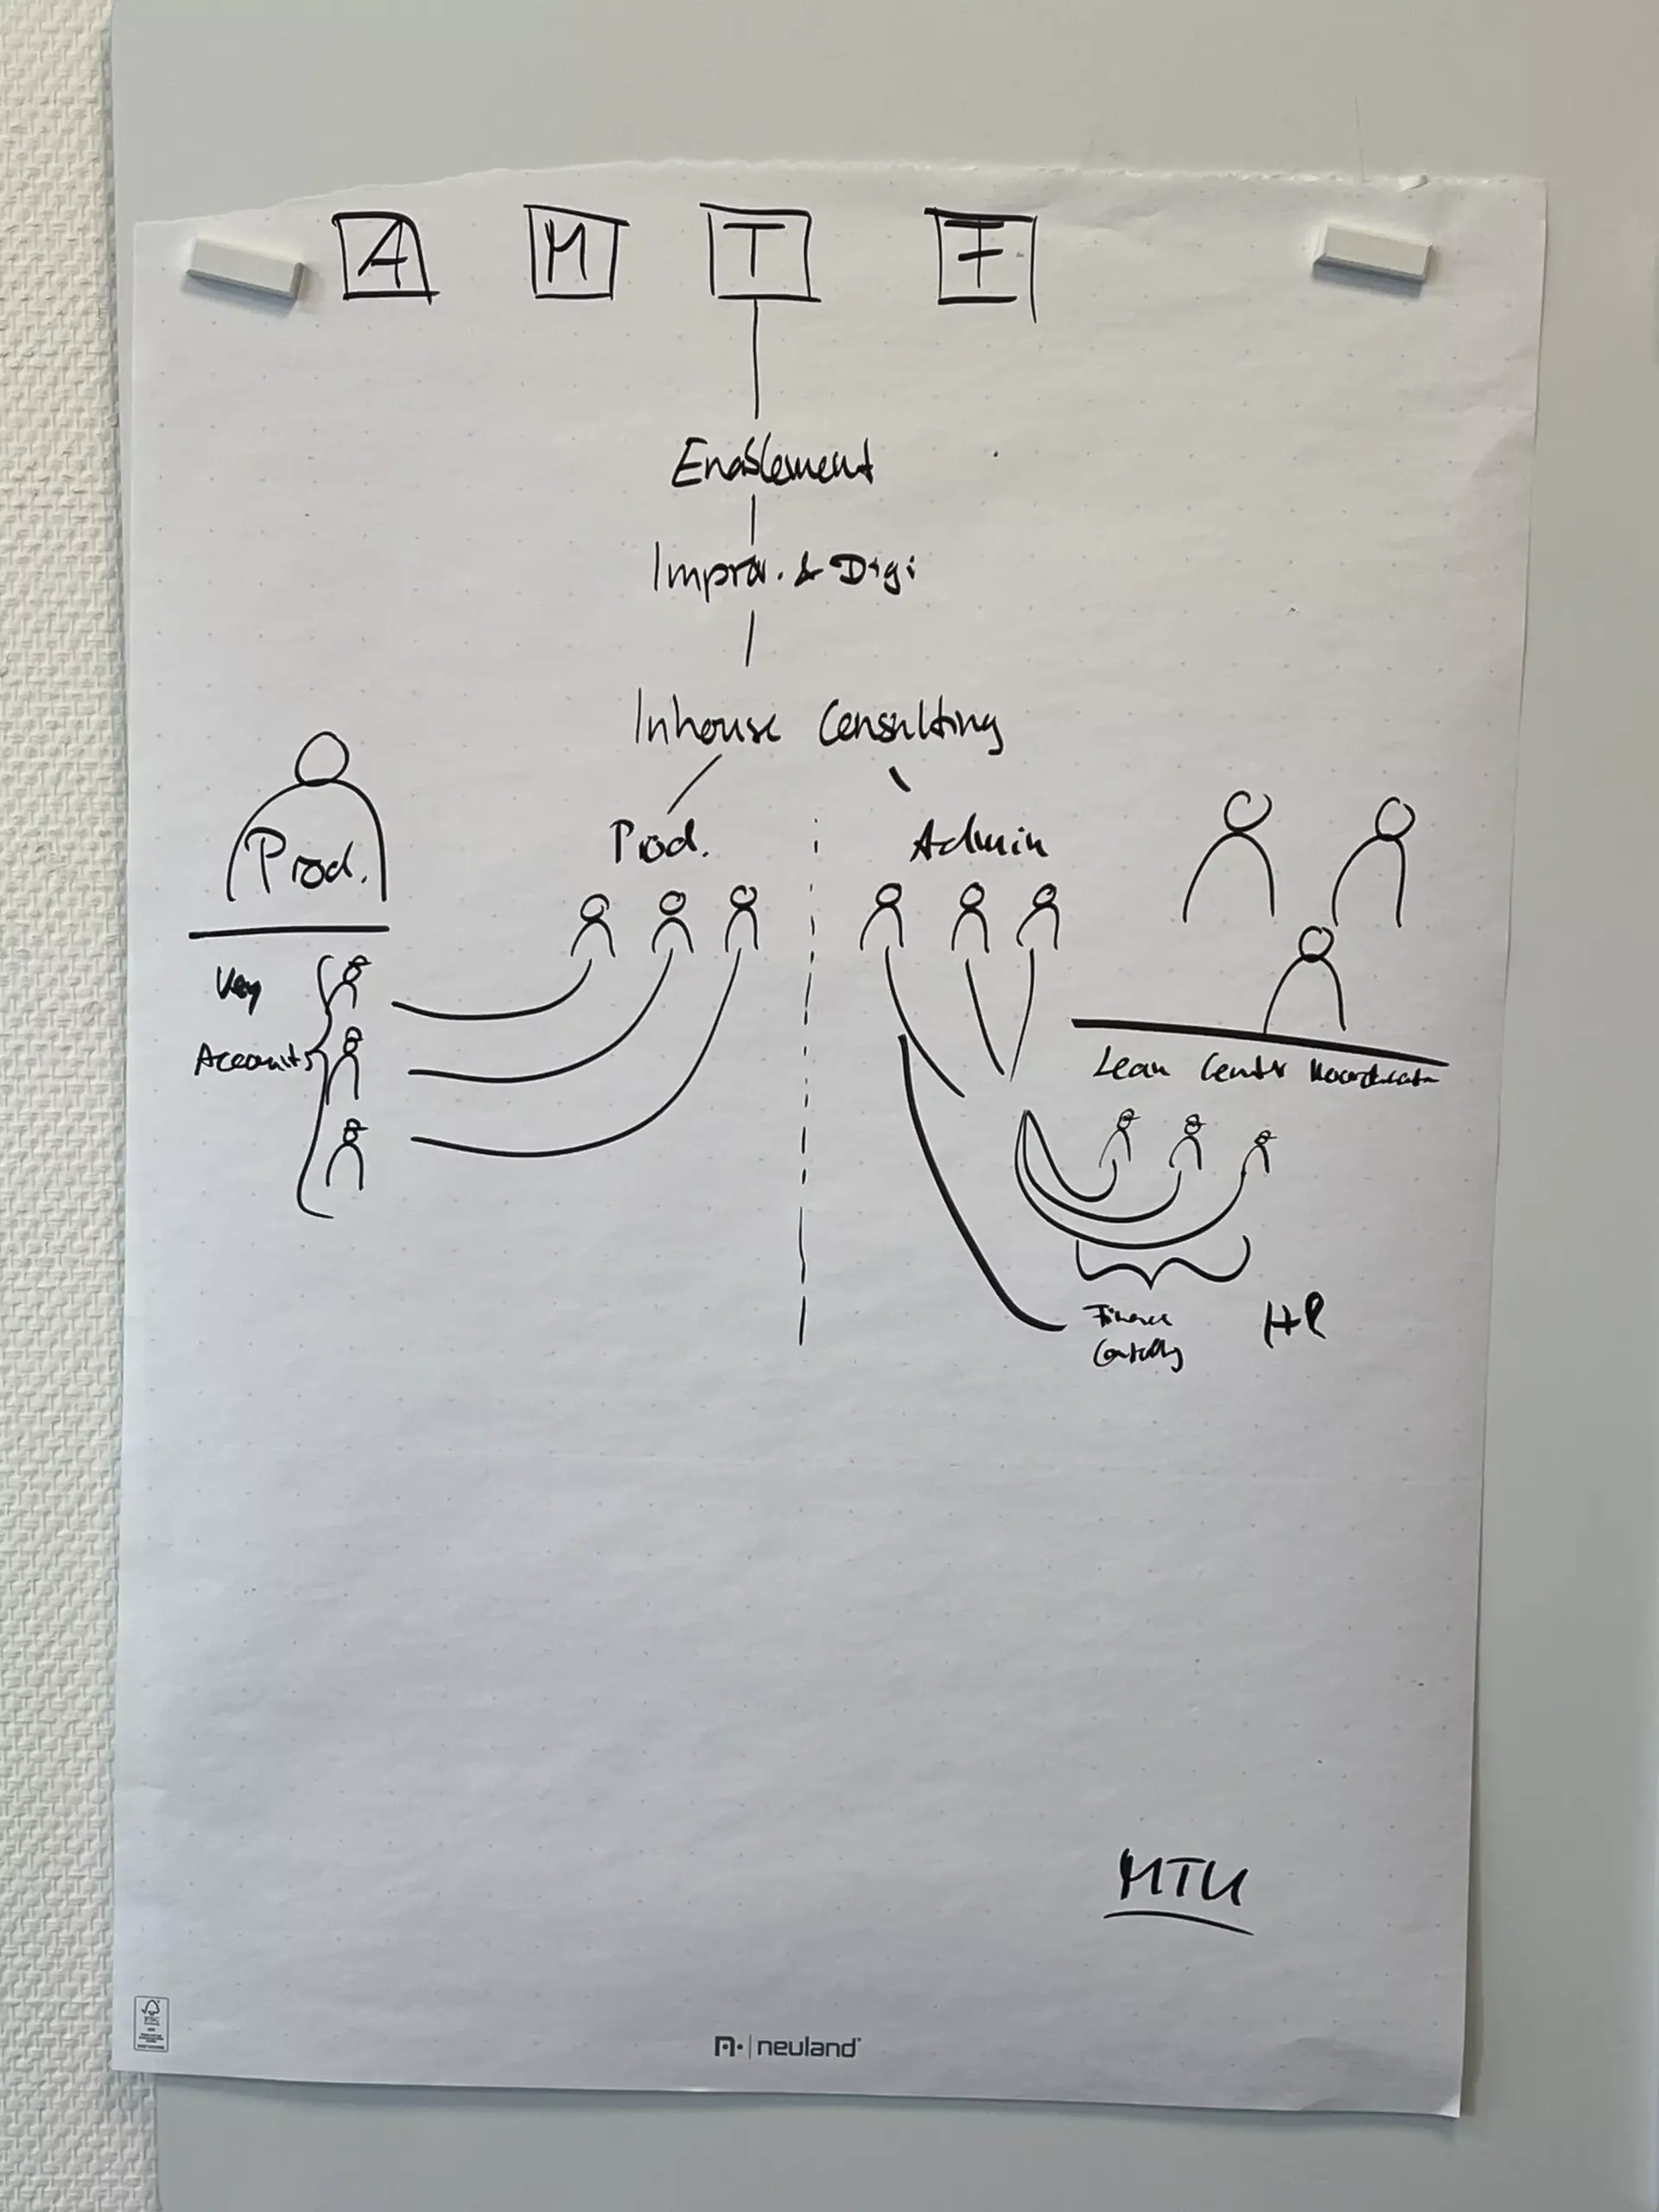 A M T F
Enablement
Improv. & Digi
Inhouse Consulting
Prod.
Prod.
Admin
Key
Accounts
Lean Center
Finance
Controlling
HR
MTU
FSC
neuland